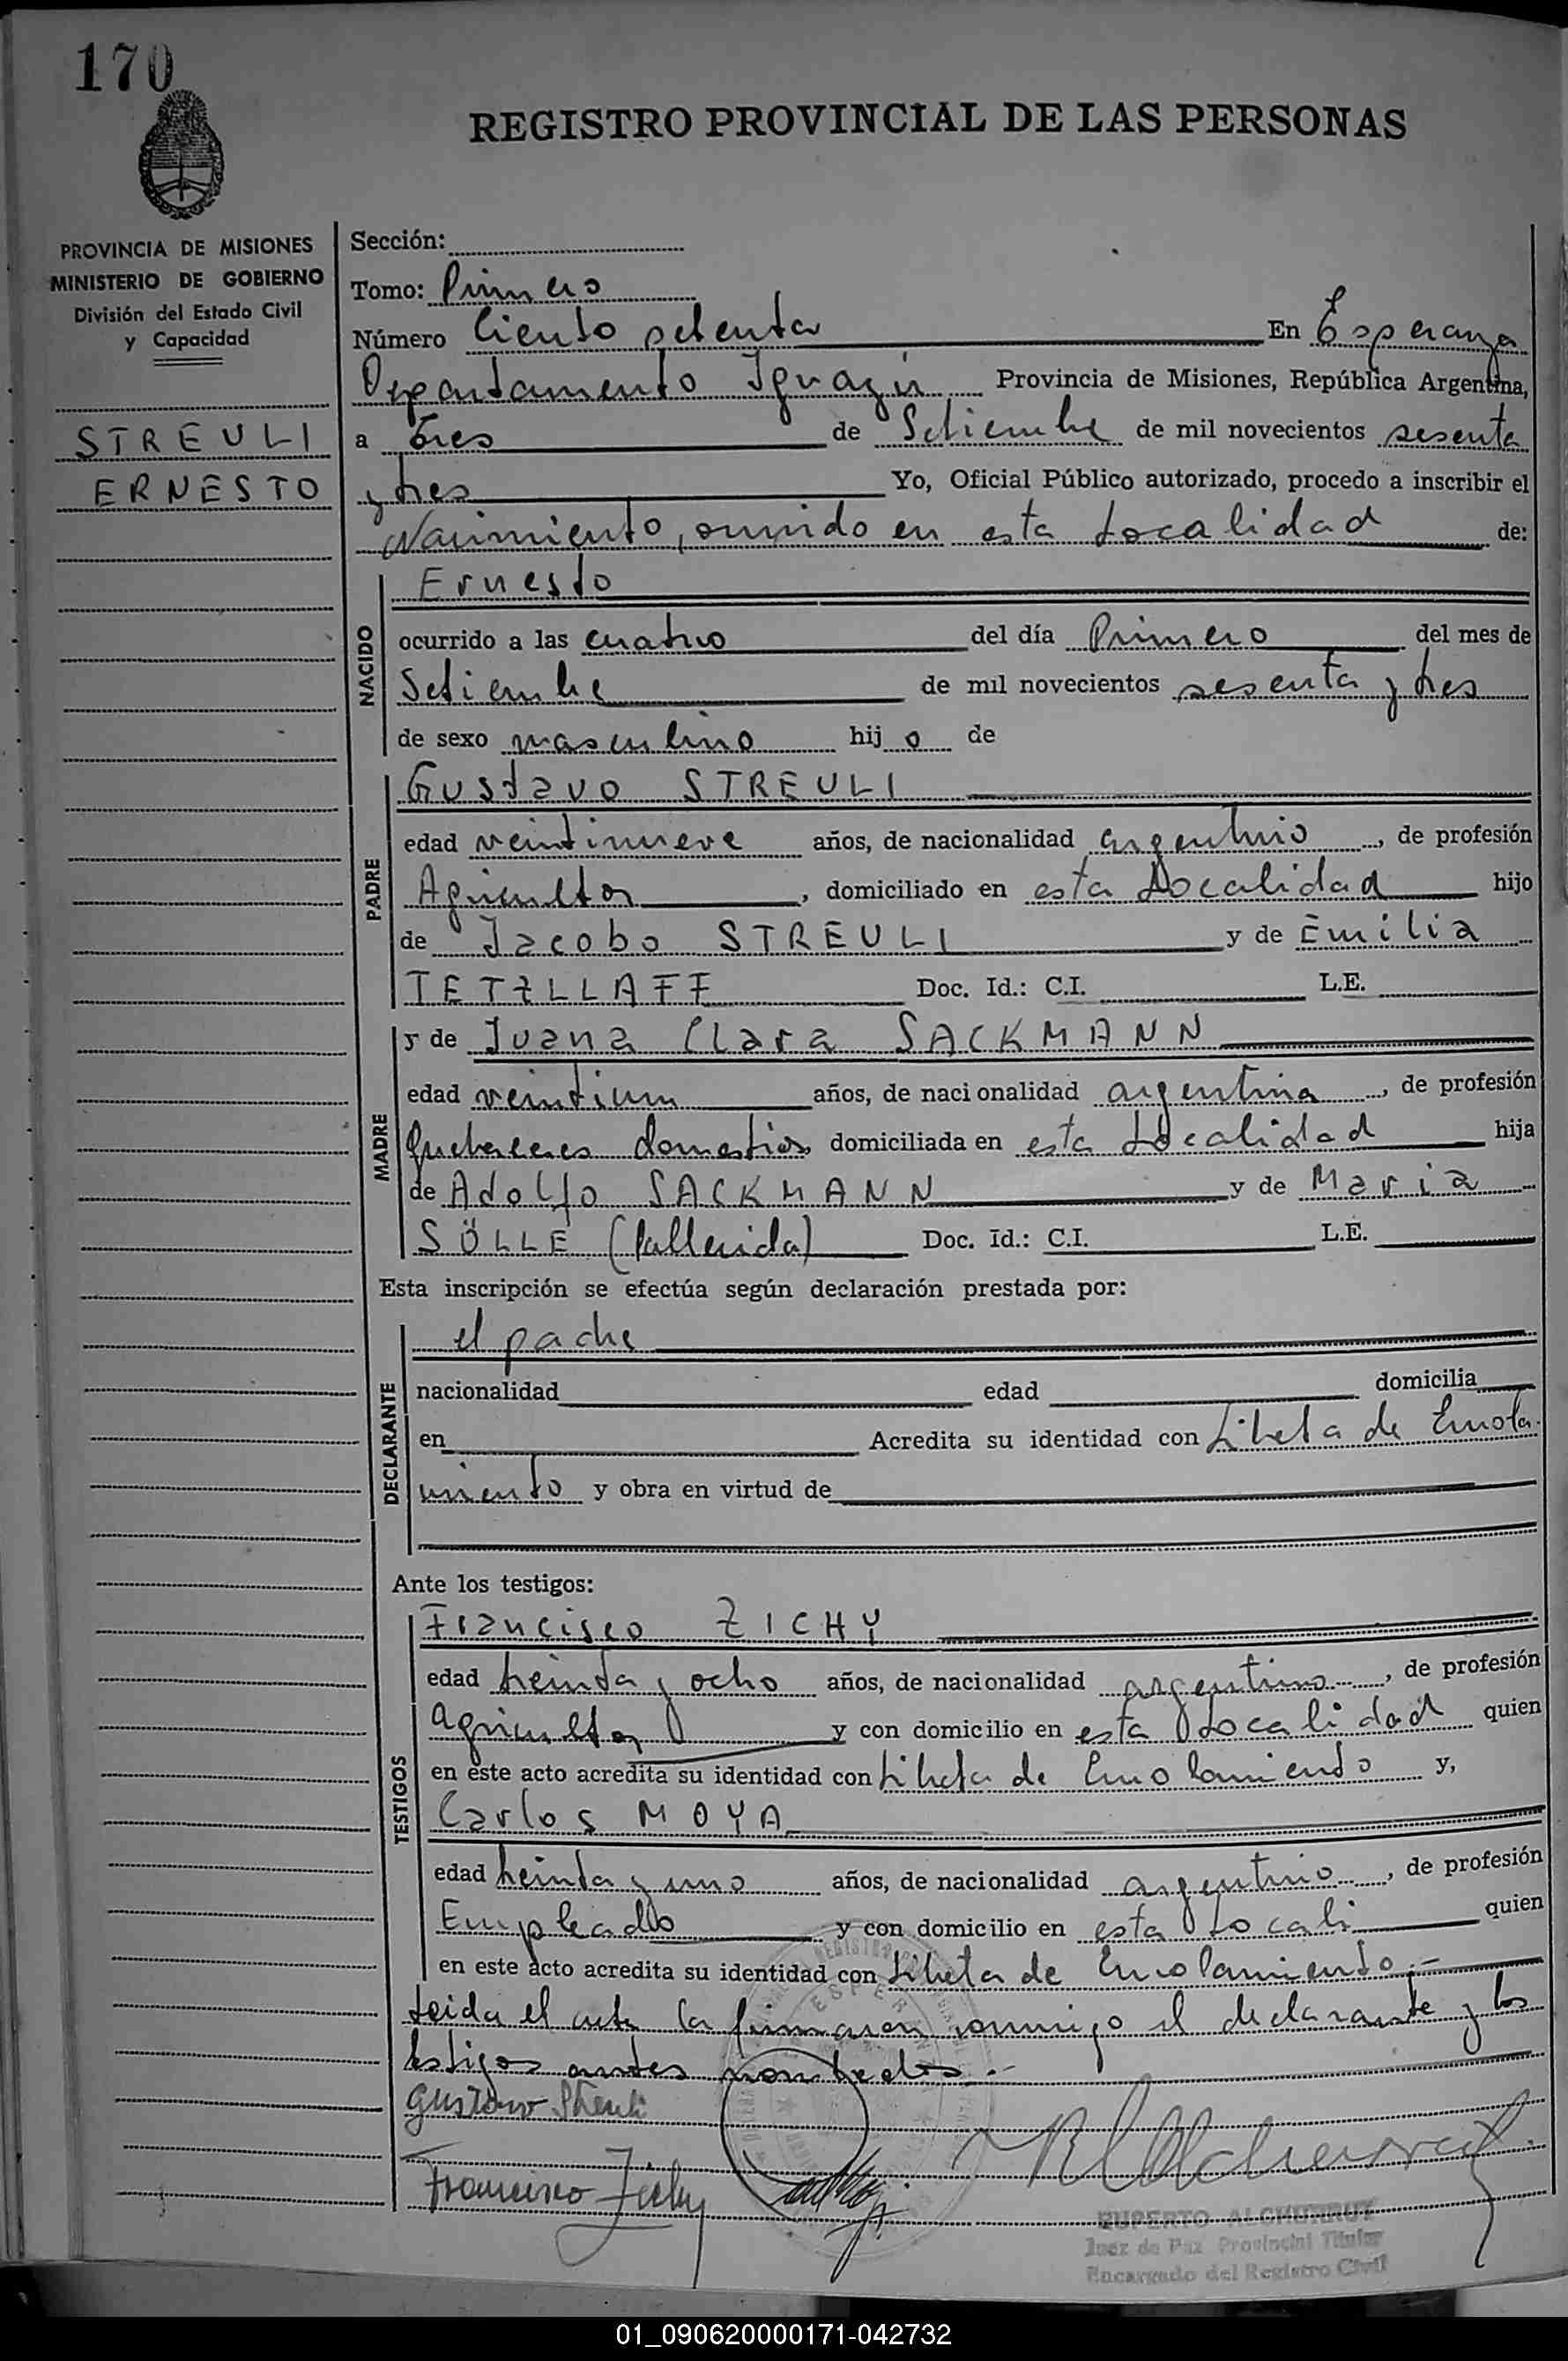 170
REGISTRO PROVINCIAL DE LAS PERSONAS
PROVINCIA DE MISIONES
MINISTERIO DE GOBIERNO
División del Estado Civil
y Capacidad
STREULI
ERNESTO
Sección:
Tomo: Primero
Número Ciento setenta En Esperanza
Departamento Iguazú Provincia de Misiones, República Argentina,
a tres de Setiembre de mil novecientos sesenta
y tres Yo, Oficial Público autorizado, procedo a inscribir el
Nacimiento, ocurrido en esta Localidad de:
NACIDO
Ernesto
ocurrido a las cuatro del día Primero del mes de
Setiembre de mil novecientos sesenta y tres
de sexo masculino hijo de
PADRE
Gustavo STREULI
edad veintinueve años, de nacionalidad argentino, de profesión
Agricultor, domiciliado en esta Localidad hijo
de Jacobo STREULI y de Emilia
TETZLLAFF Doc. Id.: C.I. L.E.
MADRE
y de Juana Clara SACKMANN
edad veintiun años, de nacionalidad argentina, de profesión
Quehaceres domesticos domiciliada en esta Localidad hija
de Adolfo SACKMANN y de Maria
SÖLLE (fallecida) Doc. Id.: C.I. L.E.
Esta inscripción se efectúa según declaración prestada por:
DECLARANTE
el padre
nacionalidad edad domicilia
en Acredita su identidad con Libreta de Enrola
miento y obra en virtud de
Ante los testigos:
TESTIGOS
Francisco ZICHY
edad treinta y ocho años, de nacionalidad argentino, de profesión
agricultor y con domicilio en esta Localidad quien
en este acto acredita su identidad con Libreta de Enrolamiento y,
Carlos MOYA
edad treinta y uno años, de nacionalidad argentino, de profesión
Empleado y con domicilio en esta Locali quien
en este acto acredita su identidad con Libreta de Enrolamiento.-
Leida el acta la firmaron conmigo el declarante y los
testigos antes nombrados.-
Gustavo Streuli
Francisco Zichy
RUPERTO ALCHURRUT
Juez de Paz Provincial Titular
Encargado del Registro Civil
01_090620000171-042732